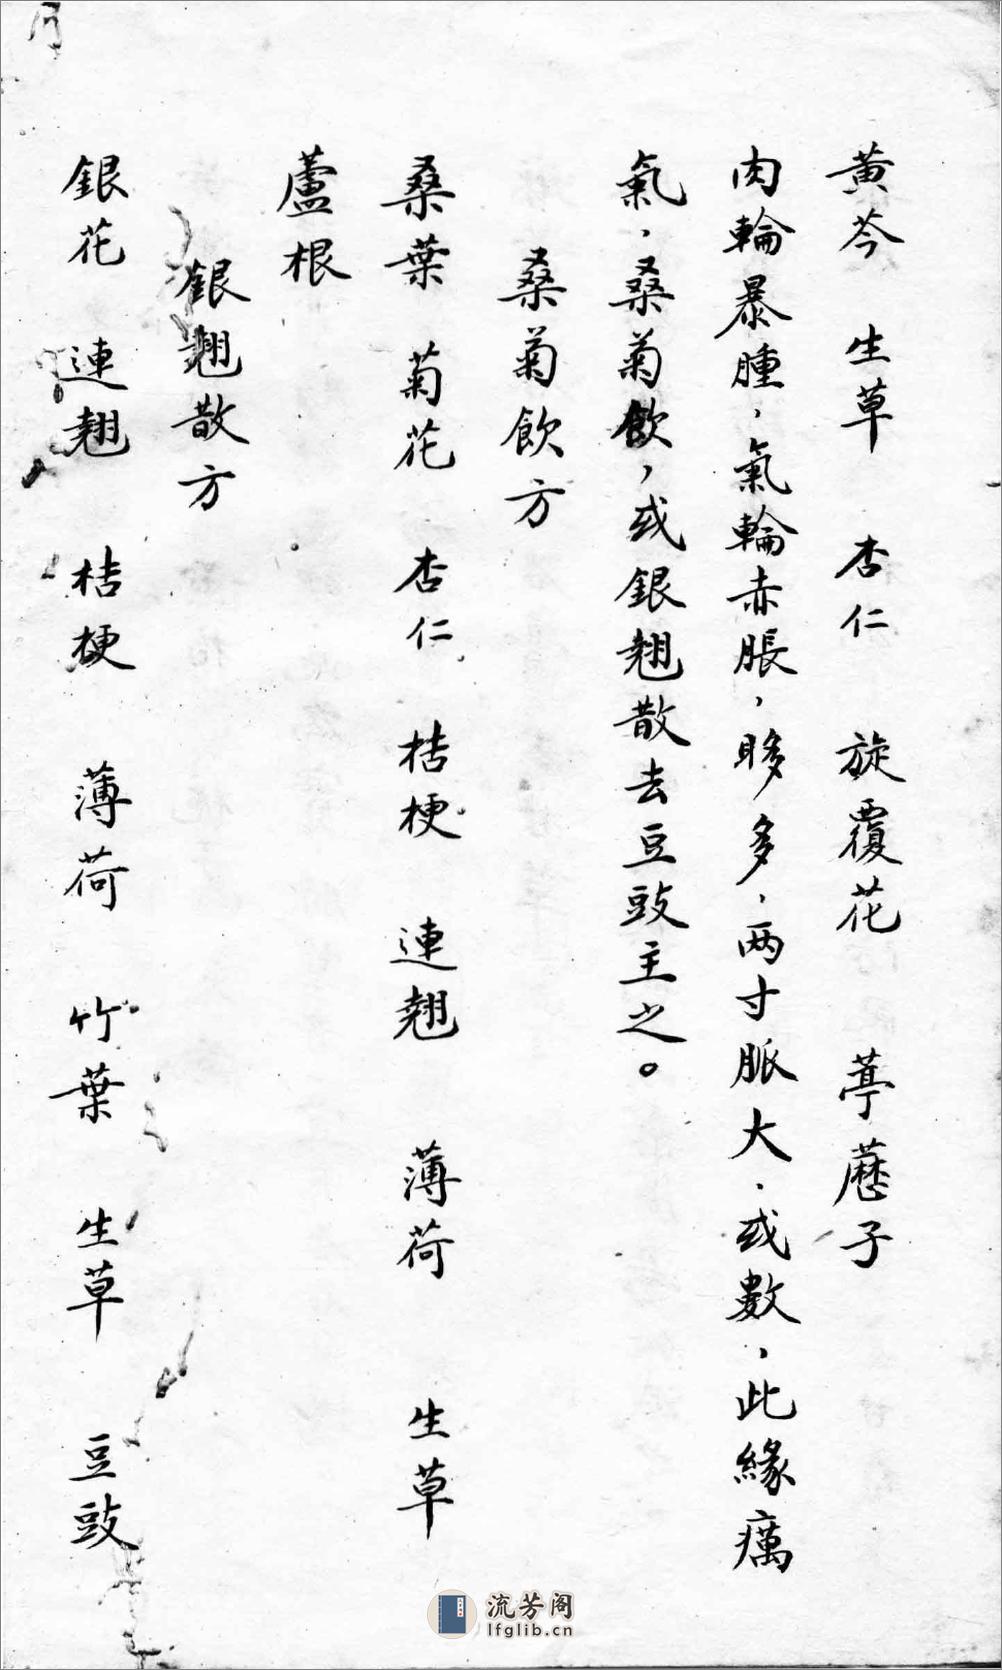 黃芩　生草　杏仁　旋覆花　葶藶子
肉輪暴腫，氣輪赤脹，眵多多，两寸脈大，或數，此緣癘
氣，桑菊飲，或銀翹散去豆豉主之。
桑菊飲方
桑葉　菊花　杏仁　桔梗　連翹　薄荷　生草
蘆根
銀翹散方
銀花　連翹　桔梗　薄荷　竹葉　生草　豆豉
流芳阁
lfglib.cn